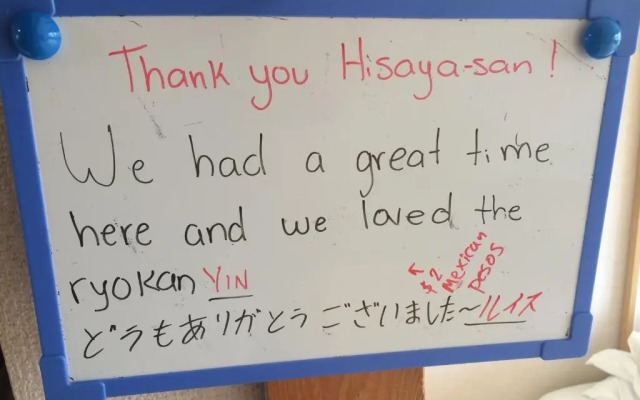 Thank you Hisaya-san!
We had a great time
here and we loved the
ryokan YIN
↖ $2 Mexican
pesos
どうもありがとうございました~ルイス